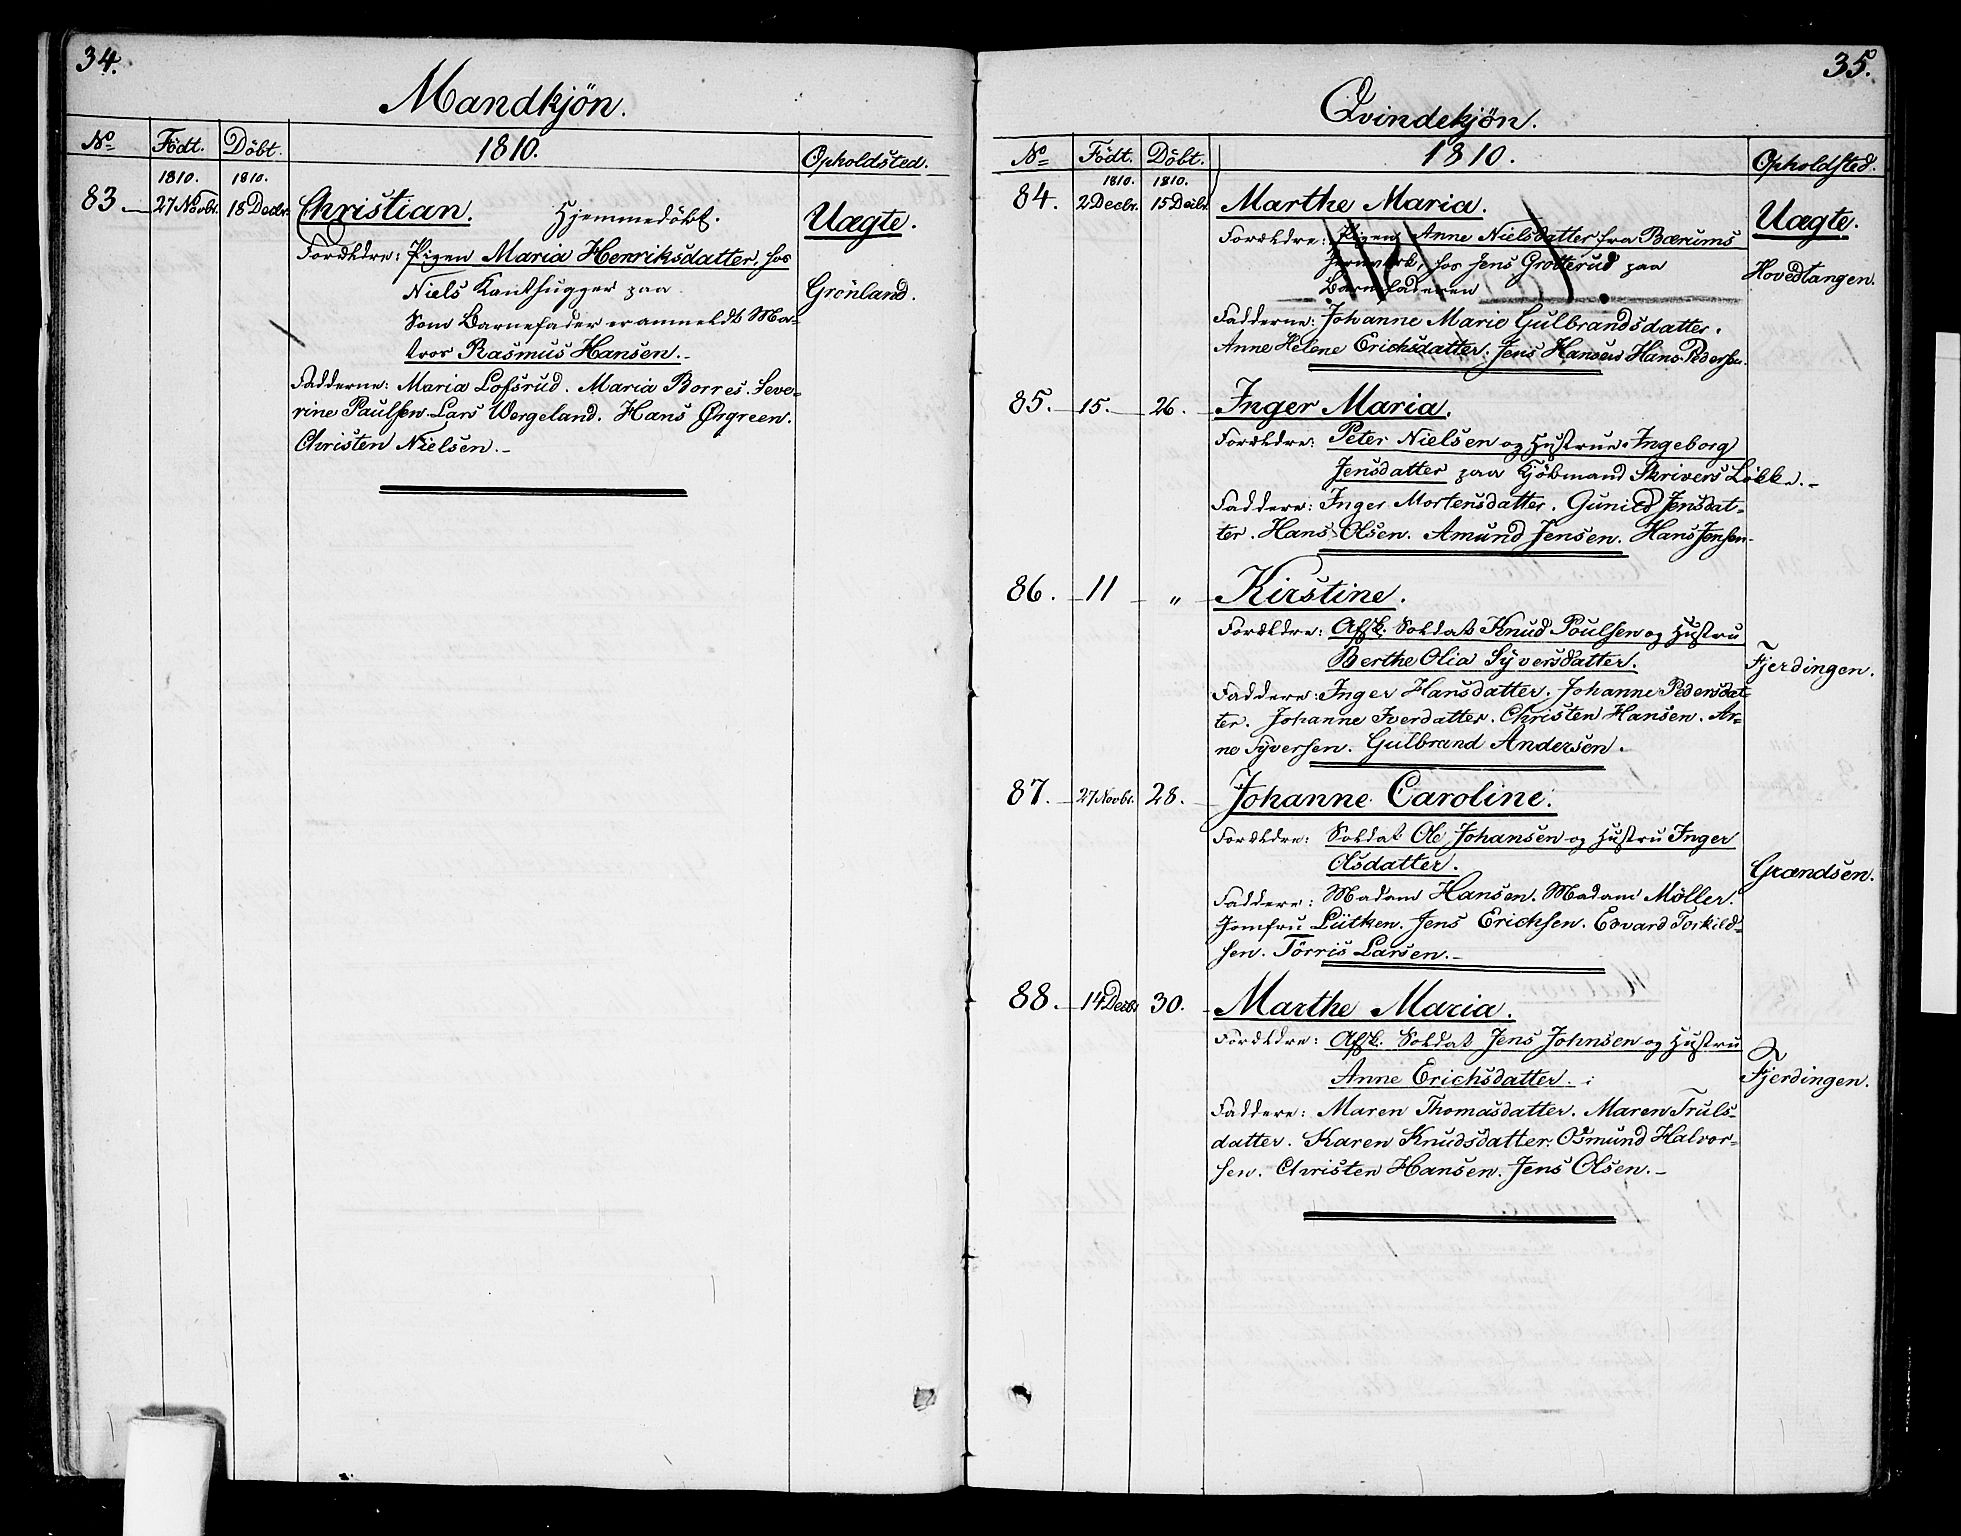 34.
Mandkjön.
No Födt. Döbt. 1810. Opholdsted.
1810. 1810.
83. 27 Novbr. 18 Decbr. Christian. Hjemmedöbt. Uægte.
Forældre: Pigen Maria Henriksdatter, hos
Niels Kanthugger paa Grönland.
Som Barnefader er anmeldt Ma-
tros Rasmus Hansen.
Fadderne: Maria Lofsrud. Maria Borres. Seve-
rine Paulsen. Lars Wergeland. Hans Örgreen.
Christen Nielsen.
35.
Qvindekjön.
No Födt. Döbt. 1810. Opholdsted.
1810. 1810.
84. 2 Decbr. 15 Decbr. Marthe Maria. Uægte.
Forældre: Pigen Anne Nielsdatter fra Bærums
Jernværk, hos Jens Grötterud paa Hovedtangen.
Barnefaderen
Fadderne: Johanne Marie Gulbrandsdatter.
Anne Helene Erichsdatter. Jens Hansen Hans Pedersen.
85. 15. 26. Inger Maria.
Forældre: Peter Nielsen og Hustrue Ingeborg
Jensdatter paa Kjöbmand Skrivers Lökke.
Faddere: Inger Mortensdatter. Gunild Jensdat-
ter. Hans Olsen. Amund Jensen. Hans Jensen
86. 11 " Kirstine.
Forældre: Afsk. Soldat Knud Poulsen og Hustru
Berthe Olia Syversdatter. Fjerdingen.
Faddere: Inger Hansdatter. Johanne Pedersdat-
ter. Johanne Iverdatter. Christen Hansen. Ar-
ne Syversen. Gulbrand Andersen.
87. 27 Novbr. 28. Johanne Caroline.
Forældre: Soldat Ole Johansen og Hustru Inger
Olsdatter. Grændsen.
Faddere: Madam Hansen. Madam Möller.
Jomfru Lütken. Jens Erichsen. Edvard Torkild-
sen. Törris Larsen.
88. 14 Decbr 30. Marthe Maria.
Forældre: Afsk. Soldat Jens Johnsen og Hustru
Anne Erichsdatter. Fjerdingen.
Faddere: Maren Thomasdatter. Maren Truls-
datter. Karen Knudsdatter. Osmund Halvor-
sen. Christen Hansen. Jens Olsen.